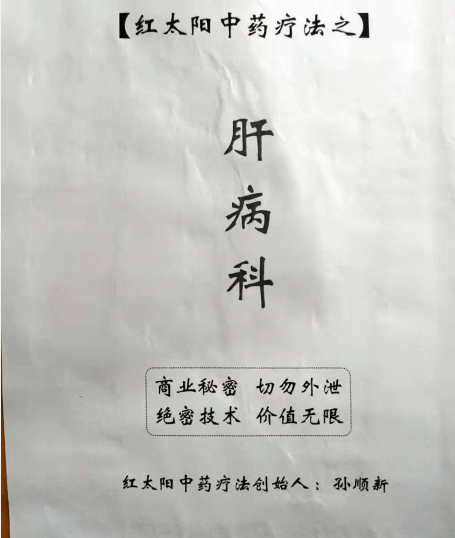 【红太阳中药疗法之】
肝
病
科
商业秘密 切勿外泄
绝密技术 价值无限
红太阳中药疗法创始人：孙顺新